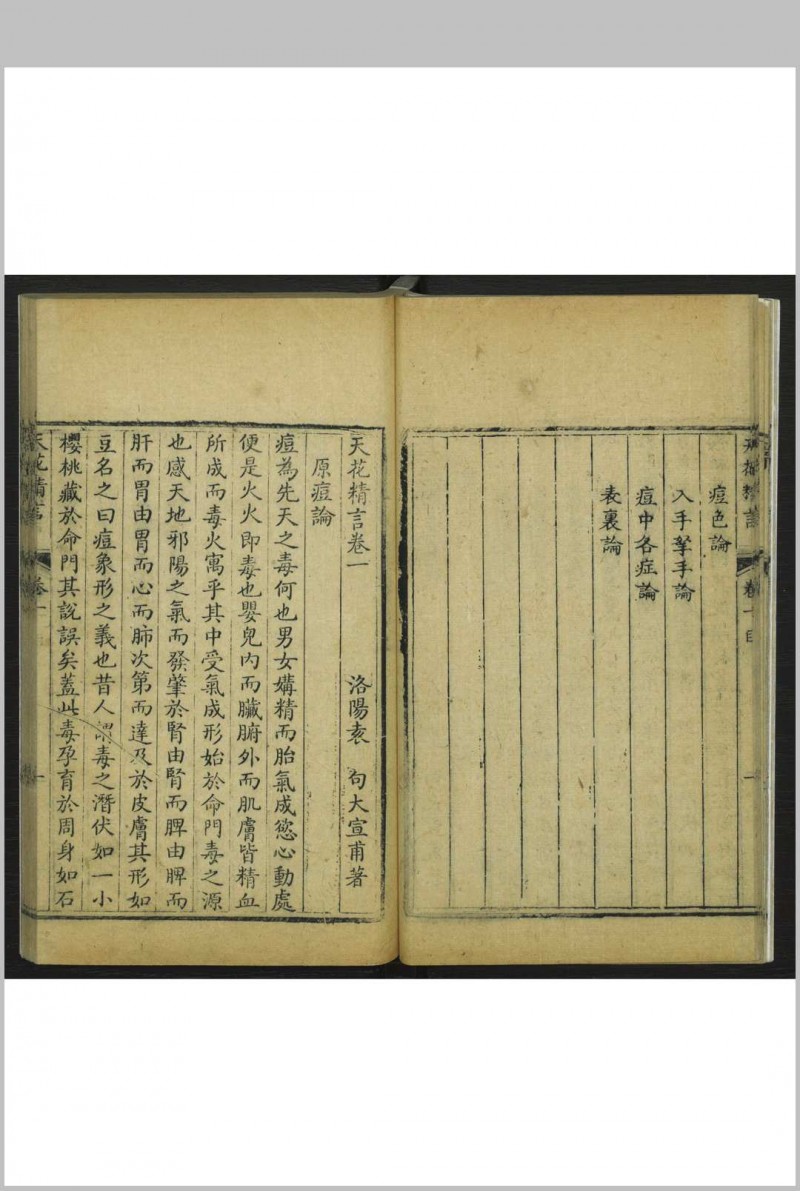 天花精言 卷一目 一
痘色論
入手拏手論
痘中各症論
表裏論
天花精言卷一 洛陽袁 句大宣甫著
原痘論
痘為先天之毒何也男女媾精而胎氣成慾心動處
便是火火即毒也嬰兒內而臟腑外而肌膚皆精血
所成而毒火寓乎其中受氣成形始於命門毒之源
也感天地邪陽之氣而發肇於腎由腎而脾由脾而
肝而胃由胃而心而肺次第而達及於皮膚其形如
豆名之曰痘象形之義也昔人謂毒之潛伏如一小
櫻桃藏於命門其說誤矣蓋此毒孕育於周身如石
天花精言 卷一 一